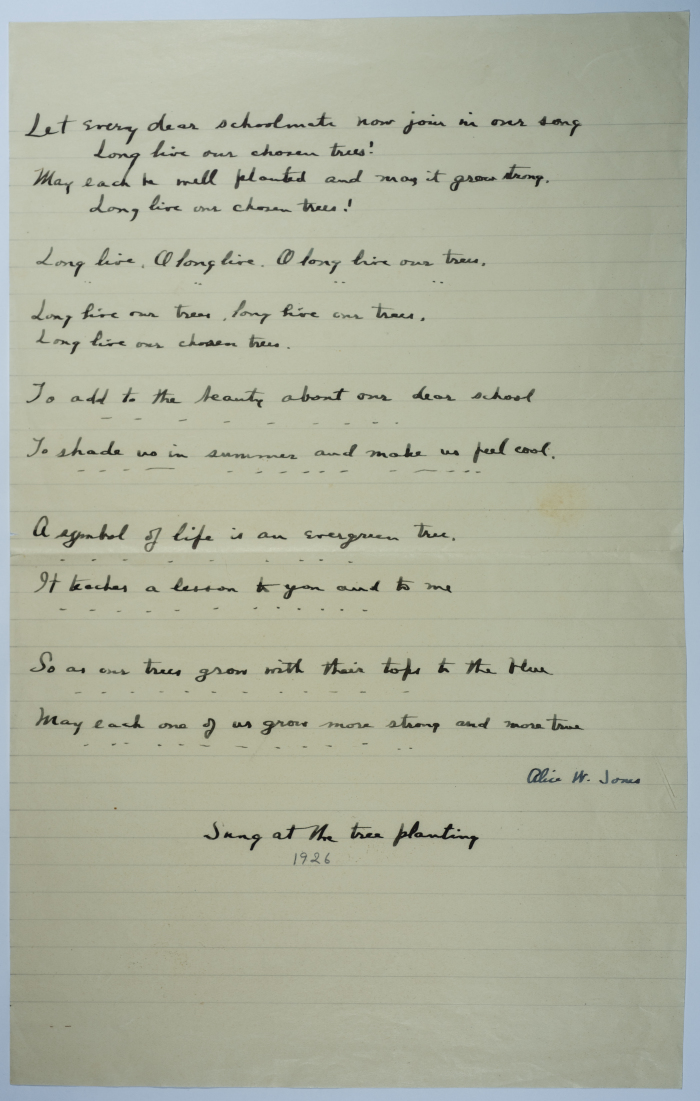 Let every dear schoolmate now join in our song
Long live our chosen trees!
May each be well planted and may it grow strong.
Long live our chosen trees!
Long live, O long live. O long live our trees.
" " " "
Long live our trees, long live our trees.
Long live our chosen trees.
To add to the beauty about our dear school
- - - - - - - - -
To shade us in summer and make us feel cool.
- - - - — - - - - - - - — - - -
A symbol of life is an evergreen tree.
- - - - - - - - -
It teaches a lesson to you and to me
- - - - - - - - - - -
So as our trees grow with their tops to the blue
- - - - - - - - - - - -
May each one of us grow more strong and more true
- - - - - - — - - - - - -
Alice W. Jones
Sung at the tree planting
1926
- -